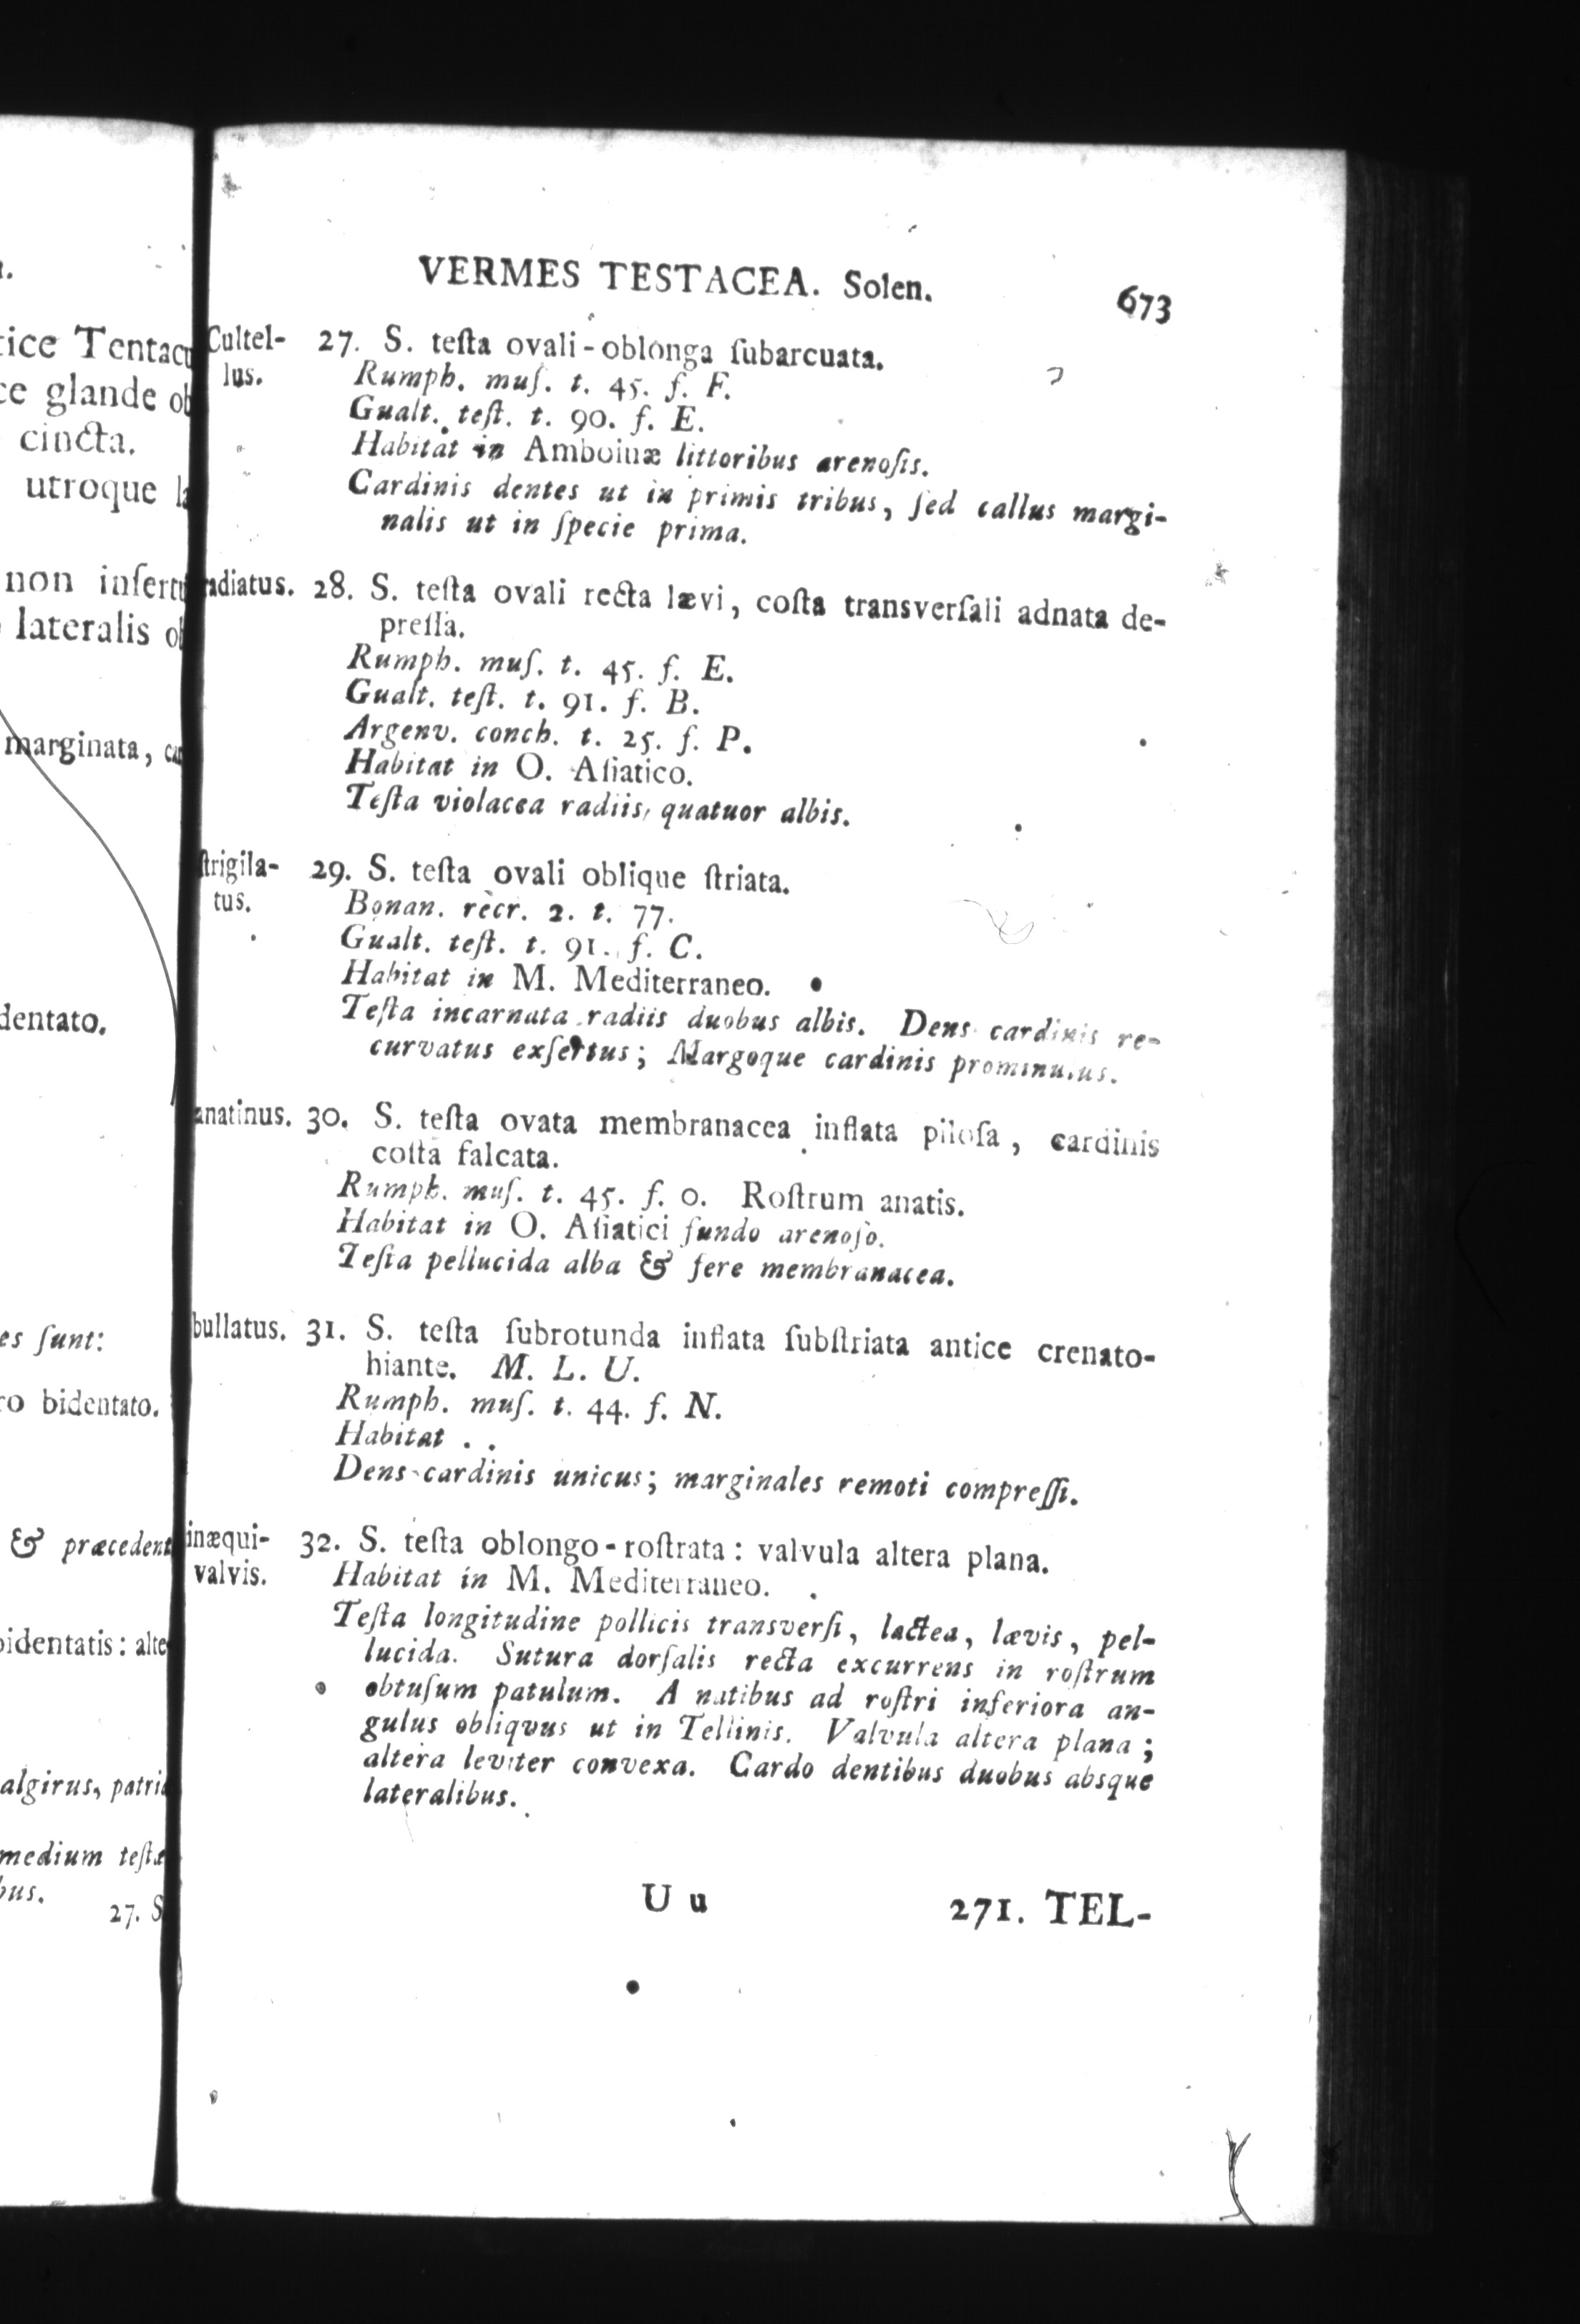 a.
tice Tentacu
ce glande ob
cincta.
utroque la
non inſertu
lateralis ob
marginata, car
dentato.
es ſunt:
ro bidentato.
& præcedent
bidentatis: alte
algirus, patria
medium teſtæ
bus.
27. S
VERMES TESTACEA. Solen. 673
Cultel- 27. S. teſta ovali-oblonga ſubarcuata.
lus. Rumph. muſ. t. 45. f. F.
Gualt. teſt. t. 90. f. E.
Habitat in Amboinæ littoribus arenoſis.
Cardinis dentes ut in primis tribus, ſed callus margi-
nalis ut in ſpecie prima.
radiatus. 28. S. teſta ovali recta lævi, coſta transverſali adnata de-
preſſa.
Rumph. muſ. t. 45. f. E.
Gualt. teſt. t. 91. f. B.
Argenv. conch. t. 25. f. P.
Habitat in O. Aſiatico.
Teſta violacea radiis, quatuor albis.
ſtrigila- 29. S. teſta ovali oblique ſtriata.
tus. Bonan. recr. 2. t. 77.
Gualt. teſt. t. 91. f. C.
Habitat in M. Mediterraneo.
Teſta incarnata radiis duobus albis. Dens cardinis re-
curvatus exſertus; Margoque cardinis prominulus.
anatinus. 30. S. teſta ovata membranacea inflata piloſa, cardinis
coſta falcata.
Rumph. muſ. t. 45. f. o. Roſtrum anatis.
Habitat in O. Aſiatici fundo arenoſo.
Teſta pellucida alba & fere membranacea.
bullatus. 31. S. teſta ſubrotunda inflata ſubſtriata antice crenato-
hiante. M. L. U.
Rumph. muſ. t. 44. f. N.
Habitat . .
Dens cardinis unicus; marginales remoti compreſſi.
inæqui- 32. S. teſta oblongo-roſtrata: valvula altera plana.
valvis. Habitat in M. Mediterraneo.
Teſta longitudine pollicis transverſi, lactea, lævis, pel-
lucida. Sutura dorſalis recta excurrens in roſtrum
obtuſum patulum. A natibus ad roſtri inferiora an-
gulus obliqvus ut in Tellinis. Valvula altera plana;
altera leviter convexa. Cardo dentibus duobus absque
lateralibus.
U u 271. TEL-